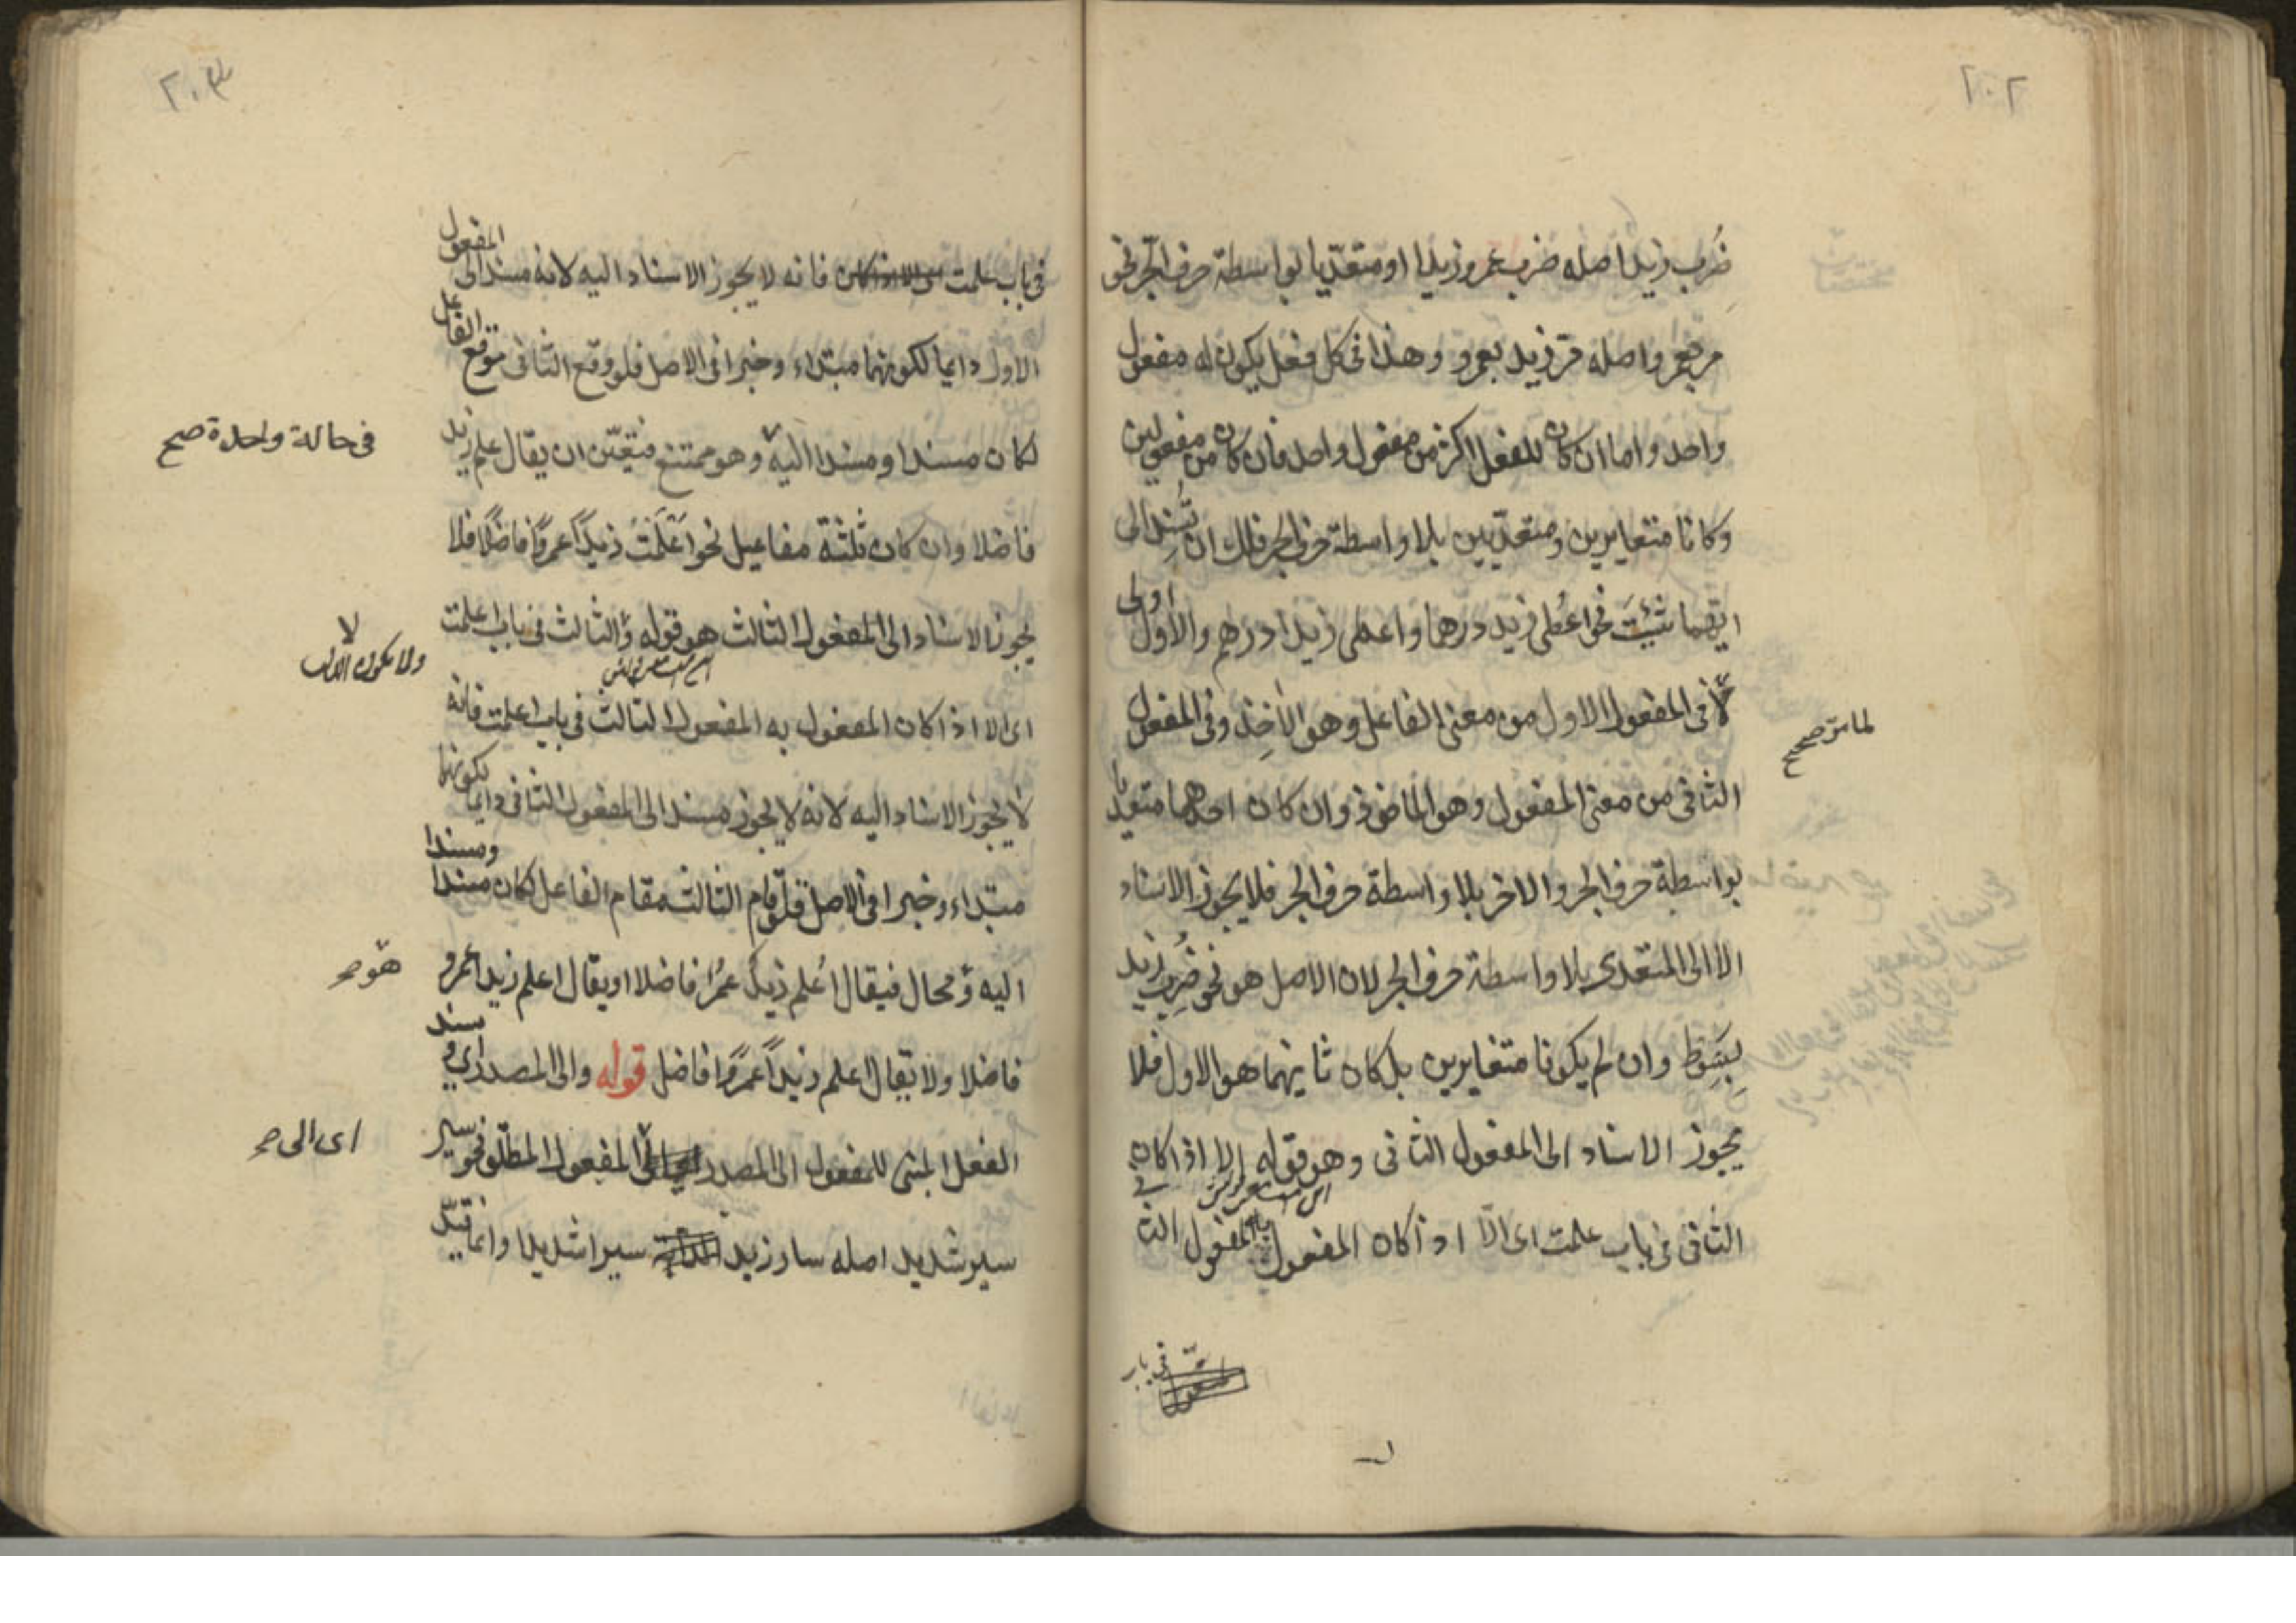 ٢٠٢
ضُرب زيد اصله ضرب عمرو زيدا او متعدّيا بواسطة حرف الجّر نحو
مر بعمرو اصله مرّ زيد بعمرو وهذا فى كل فعل يكون له مفعول
واحد واما ان كان للفعل اكثر من مفعول واحد فان كان من مفعولين
وكانا متغايرين ومتعدّيين بلا واسطة حرف الجر فلك ان تُسْنِد الى
ايّهما شئتَ نحو اعُطى زيد درهما واعطى زيدا درهم والأول اولى
لأن فى المفعول الاول من معنى الفاعل وهو الآخِذ وفى المفعول
لما مرّ صحح
الثانى من معنى المفعول وهو الماخوذ وان كان احدهما متعديا
بواسطة حرف الجر والاخر بلا واسطة حرف الجر فلا يجوز الاسناد
الا الى المتعدى بلا واسطة حرف الجر لان الاصل هو نحو ضُرِب زيد
بِسَوط وان لم يكونا متغايرين بل كان ثانيهما هو الاول فلا
يجوز الاسناد الى المفعول الثانى وهو قوله الا اذا كان
الثانى فى باب علمت اى الّا اذا كان المفعول به المفعول الثانى
فى باب
٢٠٣
فى باب علمت فانه لا يجوز الاسناد اليه لانه مسند الى المفعول
الاول دايما لكونهما مبتداء وخبرا فى الاصل فلو وقع الثانى موقع الفاعل
لكان مسندا ومسندا اليه وهو ممتنع فتعيّن ان يقال علم زيد
فى حالة واحدة صح
فاضلا وان كان ثلثة مفاعيل نحو اَعْلَمْتُ زيداً عمرًوا فاضلًا فلا
يجوز الاسناد الى المفعول الثالث هو قوله والثالث فى باب اعلمت
ولا يكون
اى الا اذا كان المفعول به المفعول الثالث فى باب اعلمت فانه
لا يجوز الاسناد اليه لانه لا يجوز مسند الى المفعول الثانى دايما لكونهما
مبتداء وخبرا فى الاصل فلو قام الثالث مقام الفاعل لكان مسندا ومسندا
اليه ومحال فيقال اُعلم زيدٌ عمرًا فاضلا او يقال اعلم زيدا عمرو
هو صح
فاضلا ولا يقال اعلم زيداً عمرًوا فاضل قوله والى المصدر اى ويسند
الفعل المبنى للمفعول الى المصدر المفعول المطلق نحو سير
اى الى صح
سير شديد اصله سار زيد سيرا شديدا وانما قيّد